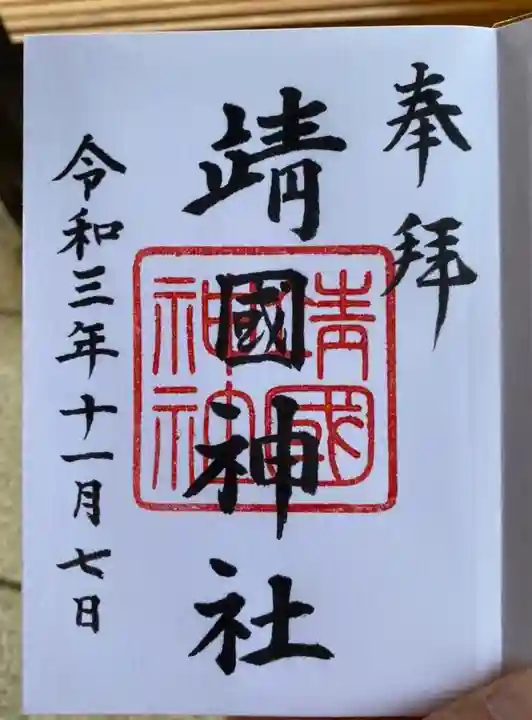 奉拝
靖國神社
靖國
神社
令和三年十一月七日